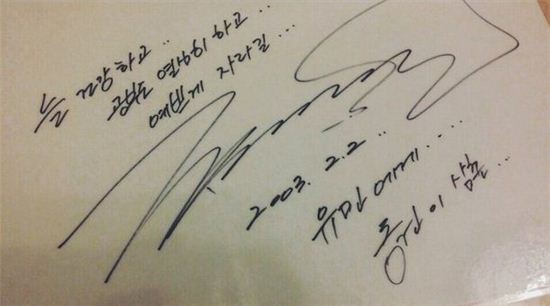 늘 건강하고 ..
공부도 열심히 하고 ...
예쁘게 자라길 ...
2003. 2. 2 ..
유민에게 ....
삼촌 ...